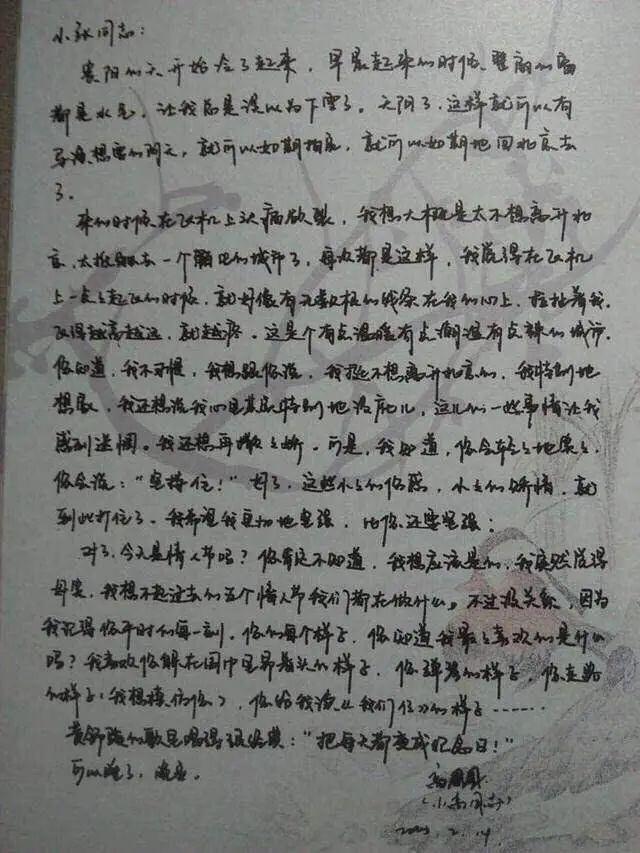 小张同志：
襄阳的天开始冷了起来，早晨起来的时候，里面的窗
都是水气，让我总是误以为下雪了。天阴了，这样就可以有
导演想要的阴天，就可以如期拍戏，就可以如期地回北京去
了。
来的时候在飞机上头痛欲裂，我想大概是太不想离开北
京，太抵触去一个陌生的城市了，每次都是这样，我觉得在飞机
上一点点起飞的时候，就好像有无数根的线条在我的心上，拉扯着我，
飞得越高越远，就越疼。这是个有点温暖有点潮湿有点辣的城市。
你知道，我不习惯，我想跟你说，我挺不想离开北京的，我特别地
想家，我还想说我心里其实特别地没底儿，这儿的一些事情让我
感到迷惘。我还想再撒撒娇。可是，我知道，你会轻轻地笑笑，
你会说："坚持住！"好了，这些小小的伤感，小小的矫情，就
到此打住了。我希望我更加地坚强，比你还要坚强；
对了，今天是情人节吗？你肯定不知道，我想应该是的，我突然觉得
好笑，我想不起过去的五个情人节我们都在做什么。不过没关系，因为
我记得你平时的每一刻，你的每个样子，你知道我最喜欢的是什么
吗？我喜欢你躲在围巾里昂着头的样子，你弹琴的样子，你走路
的样子（我想模仿你），你给我读《我们仨》的样子……
黄舒骏的歌里唱得很好美："把每天都变成纪念日！"
可以睡了，晚安。
（小高同志）
2003.2.14